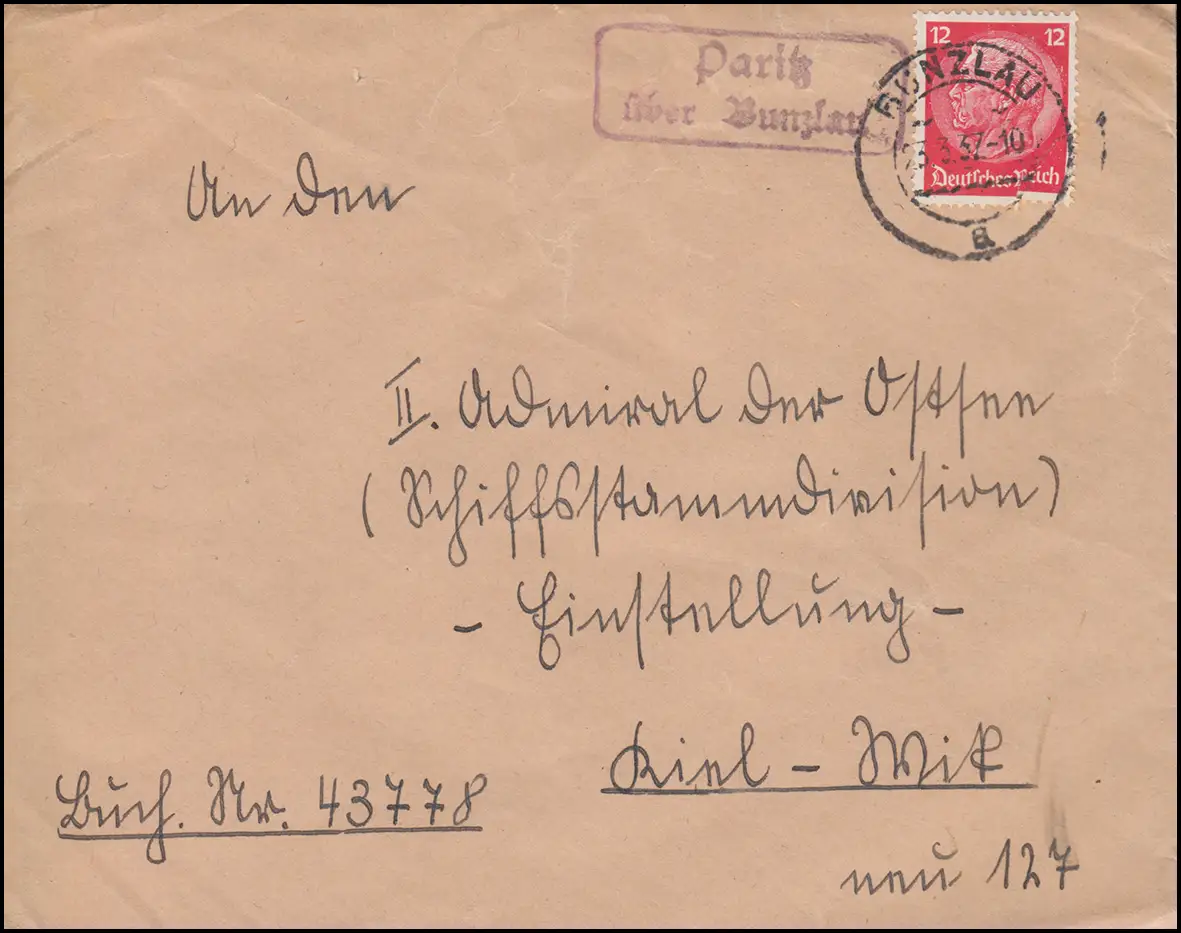 Paritz
über Bunzlau
12 12
BUNZLAU
3.37-10
Deutsches Reich
a
An den
II. Admiral der Ostsee
(Schiffsstammdivision)
- Einstellung -
Kiel - Wik
Buch. Nr. 43778
neu 127